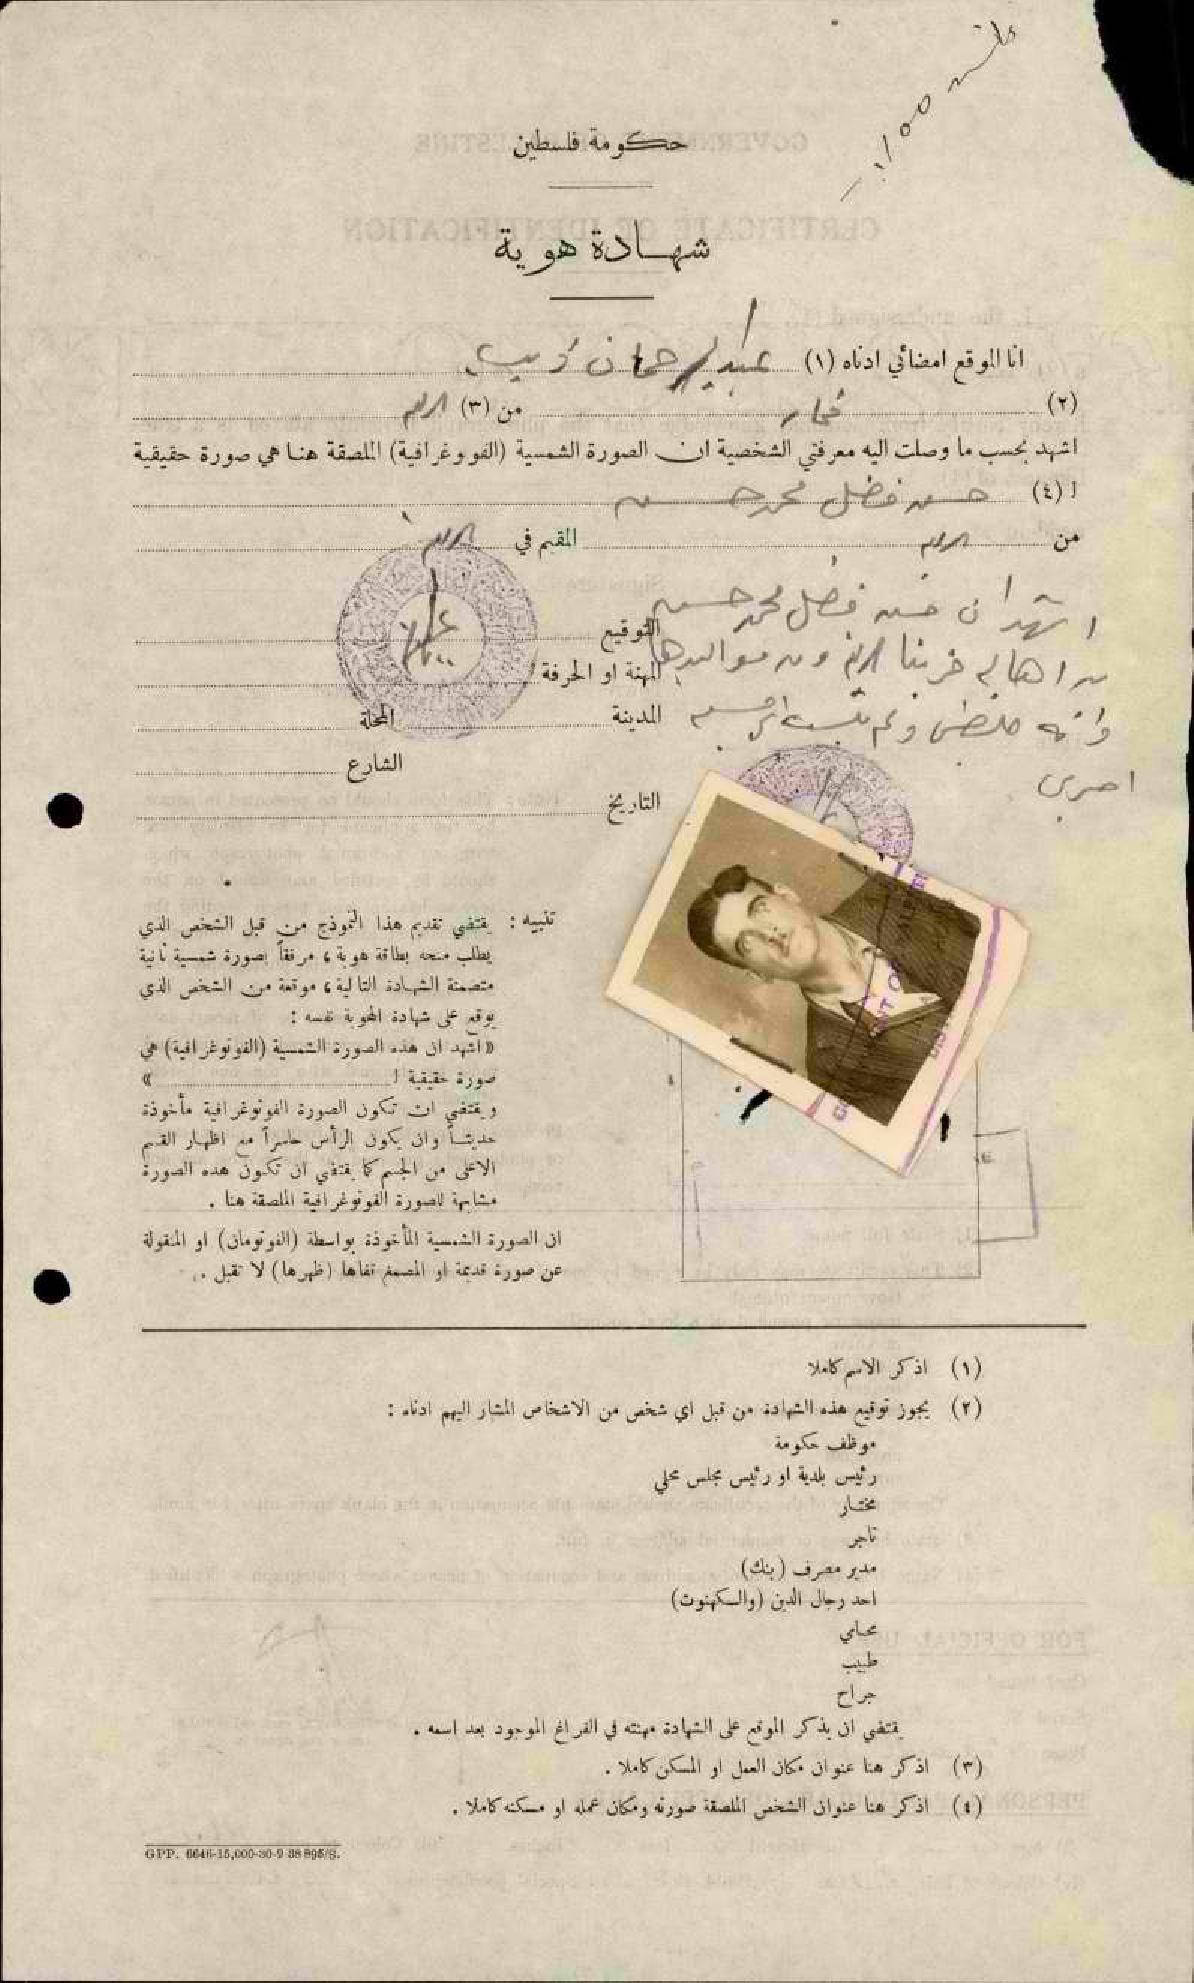 حكومة فلسطين
شهادة هوية
انا الموقع امضائي ادناه (١) عبد الرحمان ديب
(٢) مختار من (٣) الرام
اشهد بحسب ما وصلت اليه معرفتي الشخصية ان الصورة الشمسية (الفوتوغرافية) الملصقة هنا هي صورة حقيقية
ل (٤) حسن فضل محمد حسن
من الرام المقيم في الرام
اشهد ان حسن فضل محمد حسن
من اهالي قريتنا الرام ومن مواليدها
وانه فلسطيني ولم يكتسب اي جنسيه
اخرى
التوقيع
المهنة او الحرفة
المدينة المحلة
الشارع
التاريخ
تنبيه : يقتضي تقديم هذا النموذج من قبل الشخص الذي
يطلب منحه بطاقة هوية ، مرفقاً بصورة شمسية ثانية
متضمنة الشهادة التالية ، موقعة من الشخص الذي
يوقع على شهادة الهوية نفسه :
« اشهد ان هذه الصورة الشمسية (الفوتوغرافية) هي
صورة حقيقية ل »
ويقتضي ان تكون الصورة الفوتوغرافية مأخوذة
حديثاً وان يكون الرأس حاسراً مع اظهار القسم
الاعلى من الجسم كما يقتضي ان تكون هذه الصورة
مشابهة للصورة الفوتوغرافية الملصقة هنا .
ان الصورة الشمسية المأخوذة بواسطة (الفوتومان) او المنقولة
عن صورة قديمة او المصمغ قفاها (ظهرها) لا تقبل .
(١) اذكر الاسم كاملا
(٢) يجوز توقيع هذه الشهادة من قبل اي شخص من الاشخاص المشار اليهم ادناه :
موظف حكومة
رئيس بلدية او رئيس مجلس محلي
مختار
تاجر
مدير مصرف (بنك)
احد رجال الدين (والكهنوت)
محامي
طبيب
جراح
يقتضي ان يذكر الموقع على الشهادة مهنته في الفراغ الموجود بعد اسمه .
(٣) اذكر هنا عنوان مكان العمل او المسكن كاملا .
(٤) اذكر هنا عنوان الشخص الملصقة صورته ومكان عمله او مسكنه كاملا .
GPP. 6646-15,000-30-9-38 895/S.